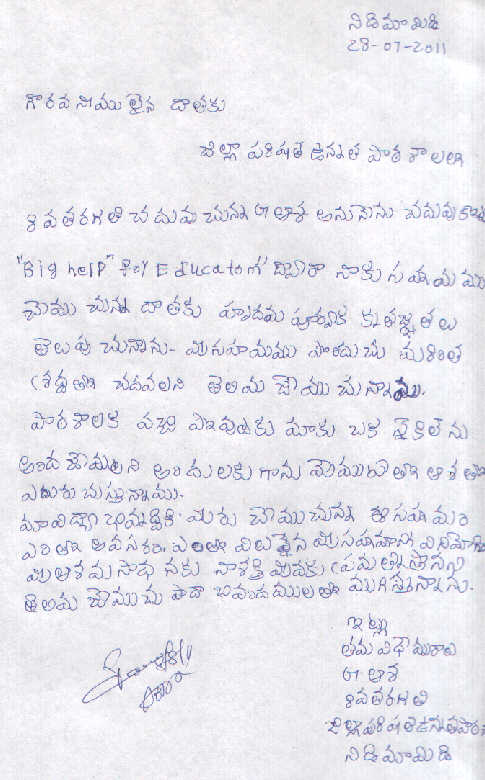 నిడిమామిడి
28-07-2011
గౌరవనీయులైన దాతకు
జిల్లా పరిషత్ ఉన్నత పాఠశాలలో
8వ తరగతి చదువుచున్న G ఆశ అనునేను చదువుకొను
"Big help" for Educaton ద్వారా నాకు సహాయము
చేయుచున్న దాతకు హృదయ పూర్వక కృతజ్ఞతలు
తెలుపుచున్నాను. మీసహాయము పొందుచు మరింత
శ్రద్ధతో చదవాలని తెలియచేయుచున్నాము.
పాఠశాలకి వచ్చి పోవుటకు మాకు ఒక సైకిల్ను
అందచేయాలని అందులకుగాను మేము ఆశతో
ఎదురుచూస్తున్నాము.
మా విద్యాభివృద్ధికి మీరు చేయుచున్న ఈ సహాయం
ఎంతో అవసరం. ఎంతో విలువైన మీసహాయాన్ని వినియోగించి
మీఆశయ సాధనకు నాశక్తి మేరకు ప్రయత్నిస్తానని
తెలియచేయుచు పాదాభివందనములతో ముగిస్తున్నాను.
ఇట్లు
తమ విధేయురాలు
G ఆశ
8వ తరగతి
జిల్లా పరిషత్ ఉన్నత పాఠ
నిడిమామిడి